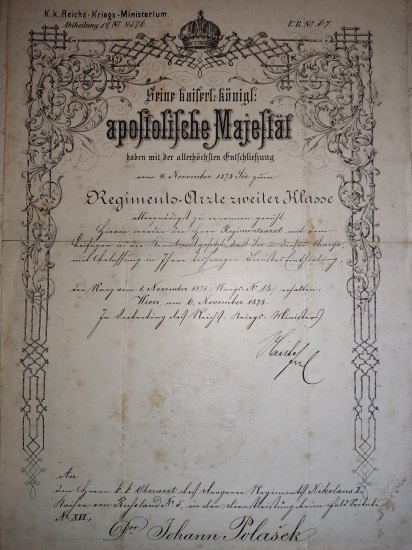 K.k. Reichs-Kriegs-Ministerium.
Abtheilung 14, № 4576. V.B. № 67
Seine kaiserl: königl:
apostolische Majestät
haben mit der allerhöchsten Entschließung
vom 4. November 1873 Sie zum
Regiments-Arzte zweiter Klasse
allergnädigst zu ernennen geruht.
Hievon werden der Herr Regimentsarzt mit dem
Beifügen in die Kenntniß gesetzt, daß Sie in dieser Charge,
mit Belassung in Ihrer bisherigen Dienstes-Eintheilung
den Rang vom 1. November 1873, Rangs № 13, erhalten.
Wien, am 6. November 1873.
In Vertretung des Reichs-Kriegs-Ministers
An
den Herrn k.k. Oberarzt des Regiments Nikolaus I.
Kaiser von Rußland № 5, in der Dienstleistung beim
№ XVI.
Johann Polašek